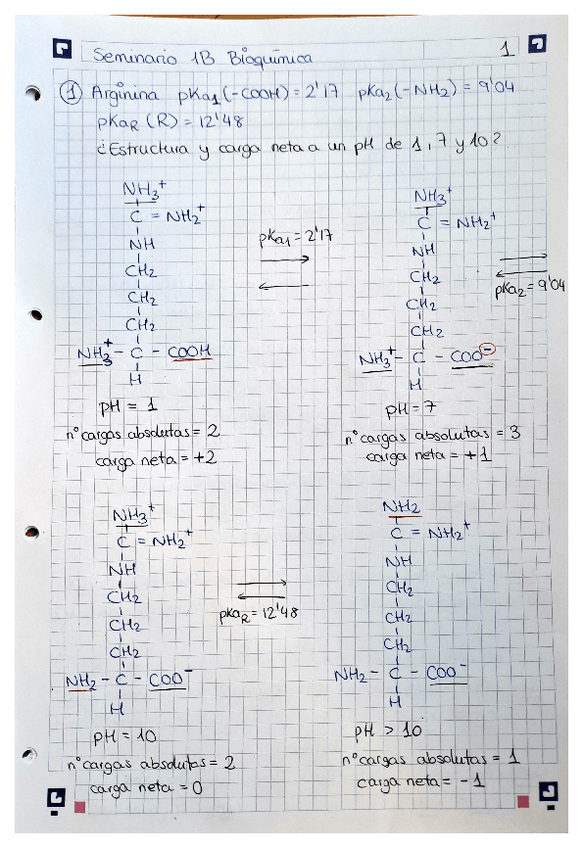 Seminario 1B Bioquímica 1
① Arginina pKa1 (-COOH) = 2'17 pKa2 (-NH2) = 9'04
pKaR (R) = 12'48
¿Estructura y carga neta a un pH de 1, 7 y 10?
NH3+
C = NH2+
NH
CH2
CH2
CH2
NH3+ - C - COOH
H
pH = 1
nº cargas absolutas = 2
carga neta = +2
pKa1 = 2'17
NH3+
C = NH2+
NH
CH2
CH2
CH2
NH3+ - C - COO-
H
pH = 7
nº cargas absolutas = 3
carga neta = +1
pKa2 = 9'04
NH3+
C = NH2+
NH
CH2
CH2
CH2
NH2 - C - COO-
H
pH = 10
nº cargas absolutas = 2
carga neta = 0
pKaR = 12'48
NH2
C = NH2+
NH
CH2
CH2
CH2
NH2 - C - COO-
H
pH > 10
nº cargas absolutas = 1
carga neta = -1